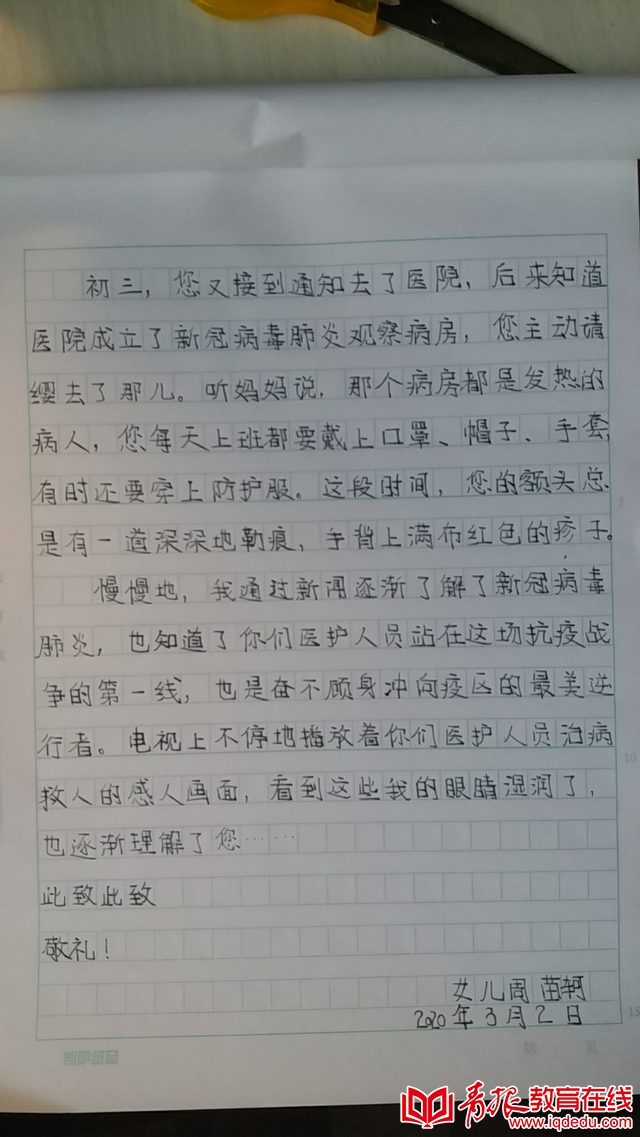 初三，您又接到通知去了医院，后来知道
医院成立了新冠病毒肺炎观察病房，您主动请
缨去了那儿。听妈妈说，那个病房都是发热的
病人，您每天上班都要戴上口罩、帽子、手套，
有时还要穿上防护服。这段时间，您的额头总
是有一道深深地勒痕，手背上满布红色的疹子。
慢慢地，我通过新闻逐渐了解了新冠病毒
肺炎，也知道了你们医护人员站在这场抗疫战
争的第一线，也是奋不顾身冲向疫区的最美逆
行者。电视上不停地播放着你们医护人员治病
救人的感人画面，看到这些我的眼睛湿润了，
也逐渐理解了您……
此致此致
敬礼！
女儿周苗轲
2020年3月2日
第 页
青报教育在线
www.iqdedu.com